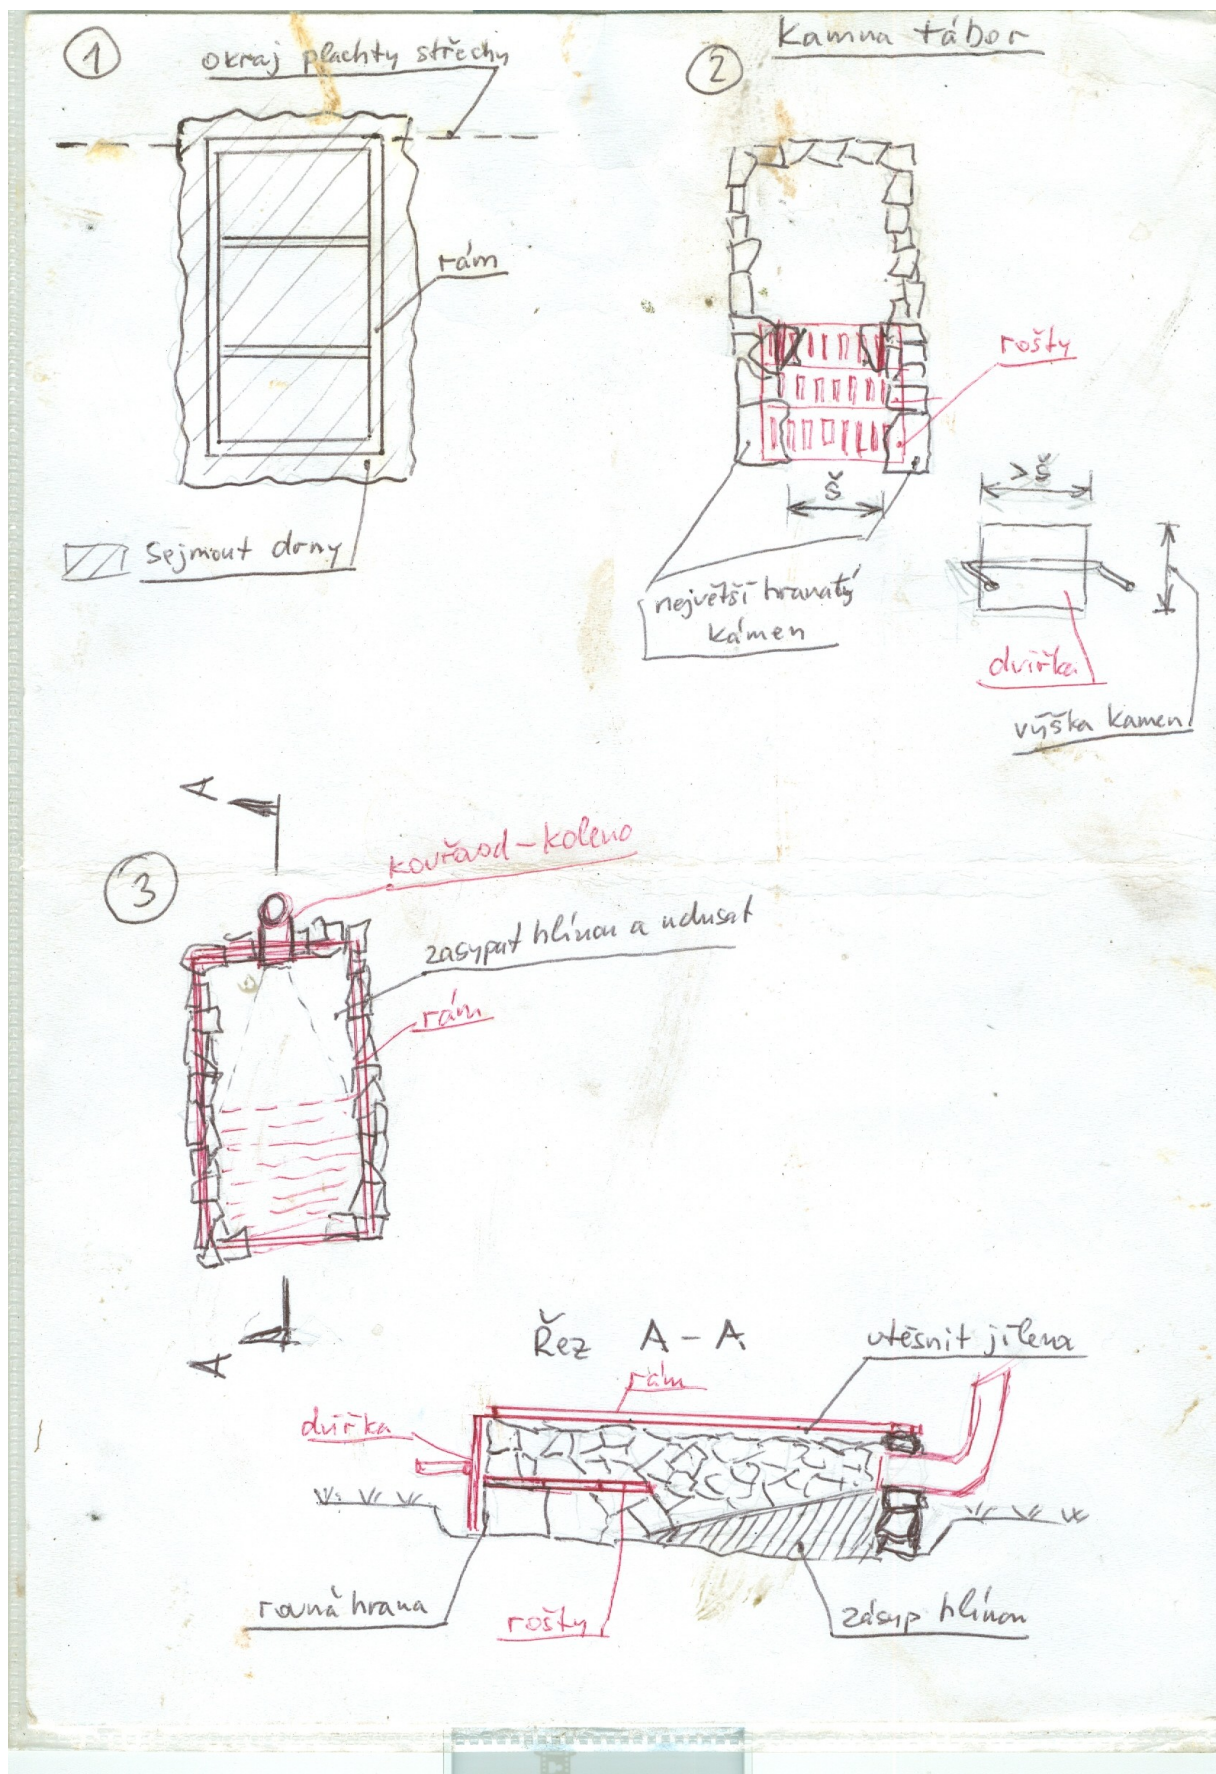 1
okraj plachty střechy
rám
Sejmout drny
Kamna tábor
2
rošty
š
> š
největší hranatý
kámen
dvířka
výška kamen
A
3
kouřovod - koleno
zasypat hlínou a udusat
rám
A
Řez A - A
utěsnit jílem
rám
dvířka
rovná hrana
rošty
zásyp hlínou